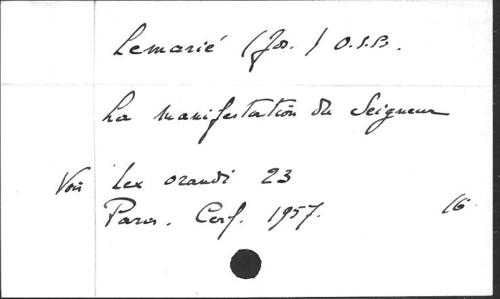 Lemarié (Jos.) O.S.B.
La manifestation du Seigneur
Voir Lex orandi 23
Paris. Cerf. 1957. 16